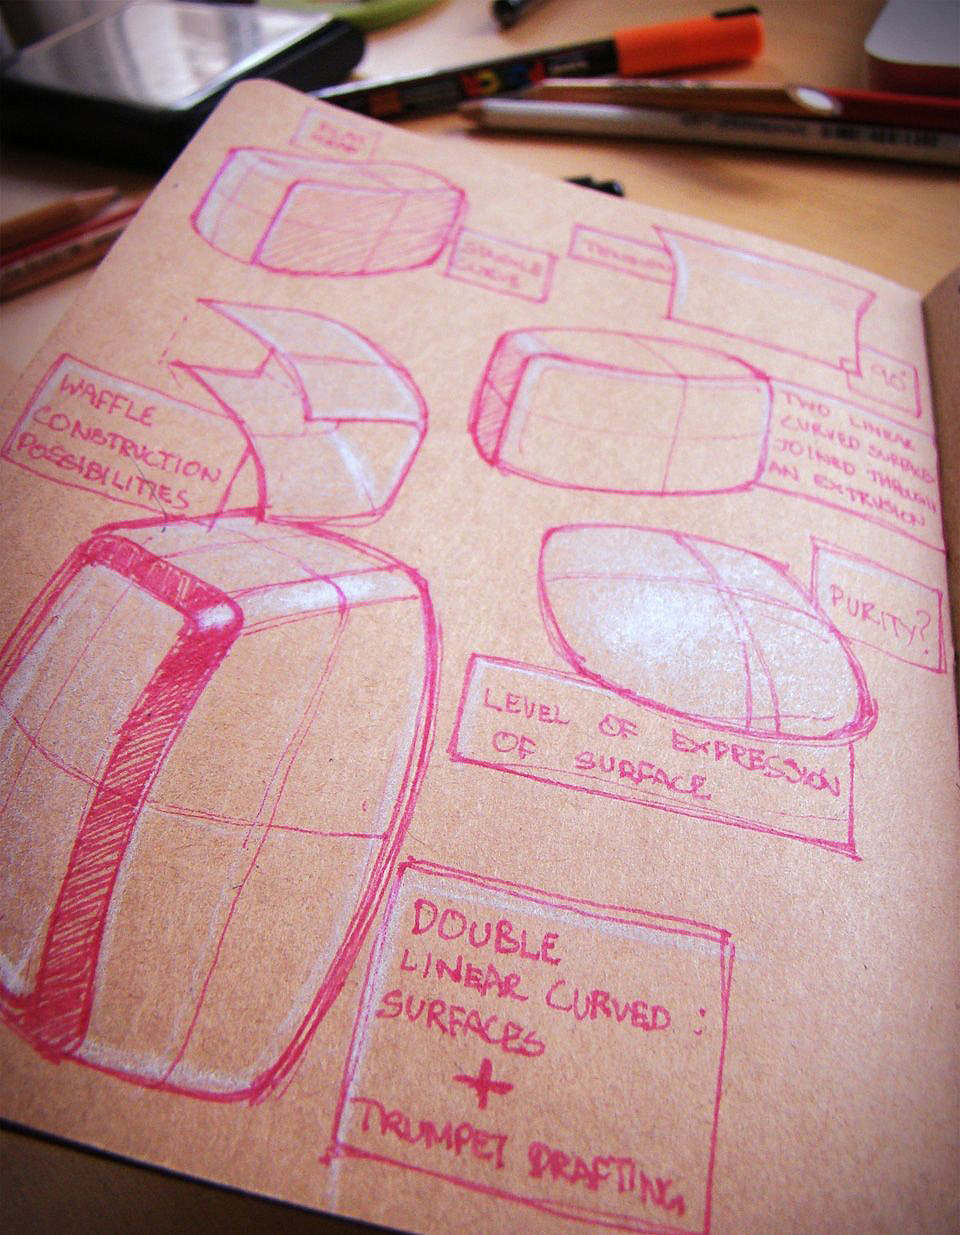 SINGLE
CURVE
TENSION
90°
WAFFLE
CONSTRUCTION
POSSIBILITIES
TWO LINEAR
CURVED SURFACES
JOINED THROUGH
AN EXTRUSION
PURITY?
LEVEL OF EXPRESSION
OF SURFACE
DOUBLE
LINEAR CURVED :
SURFACES
+
TRUMPET DRAFTING